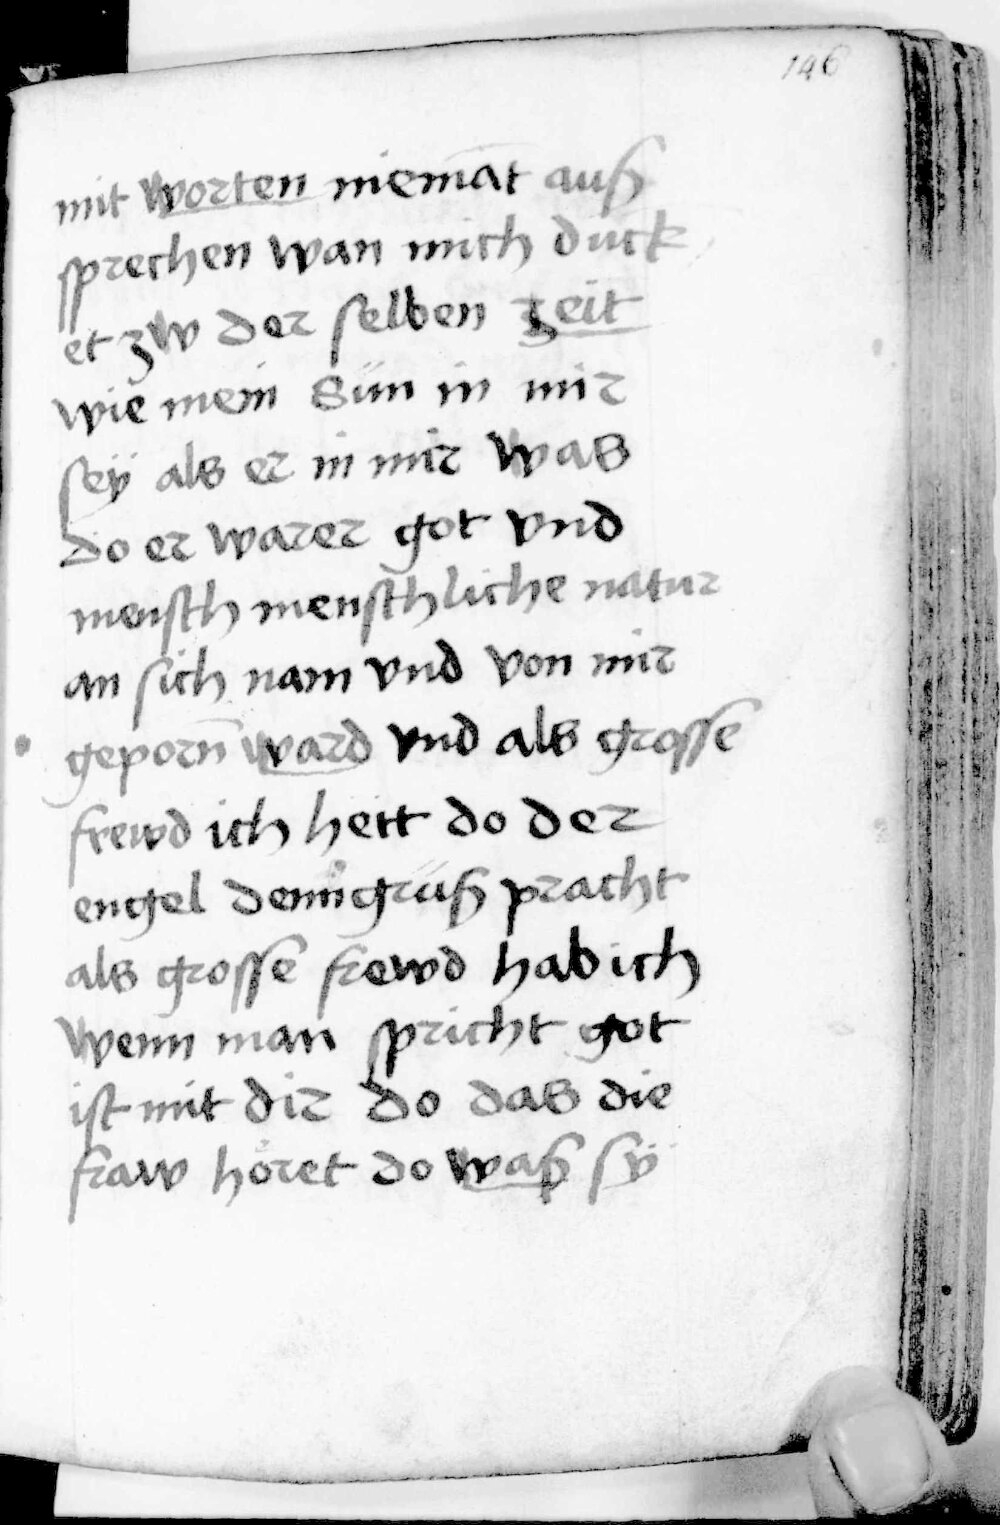 146
mit worten niemāt auß
sprechen wan mich duck
et zw der selben zeit
wie mein Sün in mir
seÿ als er in mir was
do er warer got vnd
mensch menschliche natur
an sich nam vnd von mir
geporn̄ ward vnd als grosse
frewd ich hett do der
engel den grüß pracht
als grosse frewd hab ich
wenn man spricht got
ist mit dir do das die
fraw höret do waß sÿ